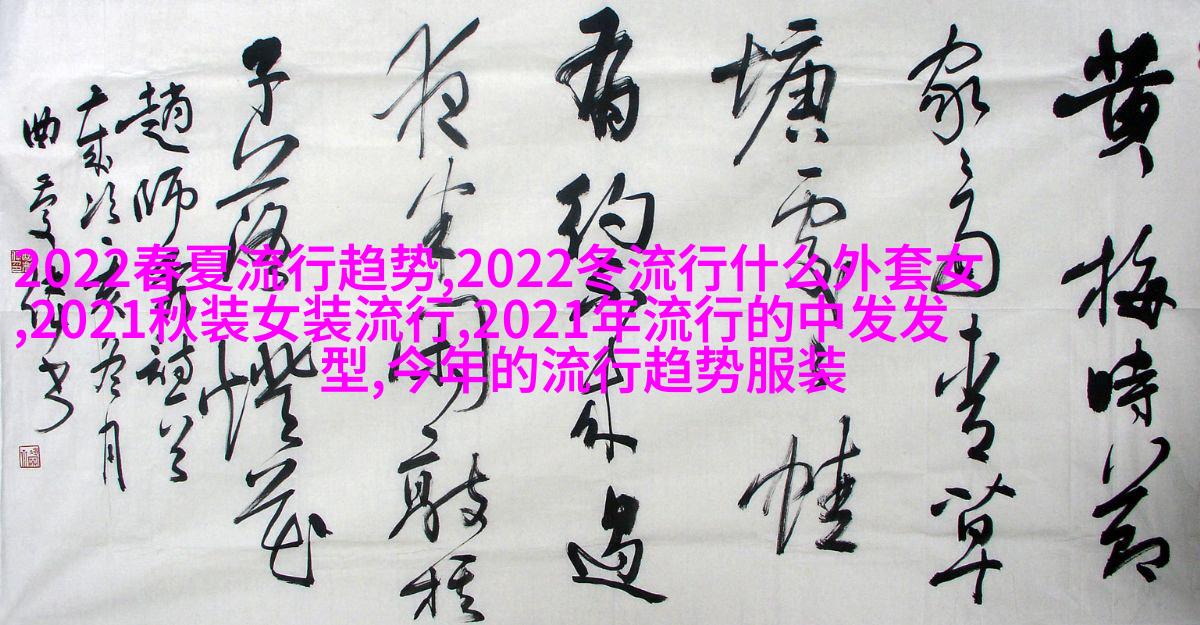 黄梅時節
家々雨青草
塘處々蛙
有约不来過
夜半闲敲棋
子落燈花
趙師
冬月
2022春夏流行趋势,2022冬流行什么外套女
,2021秋装女装流行,2021年流行的中发发
型,今年的流行趋势服装